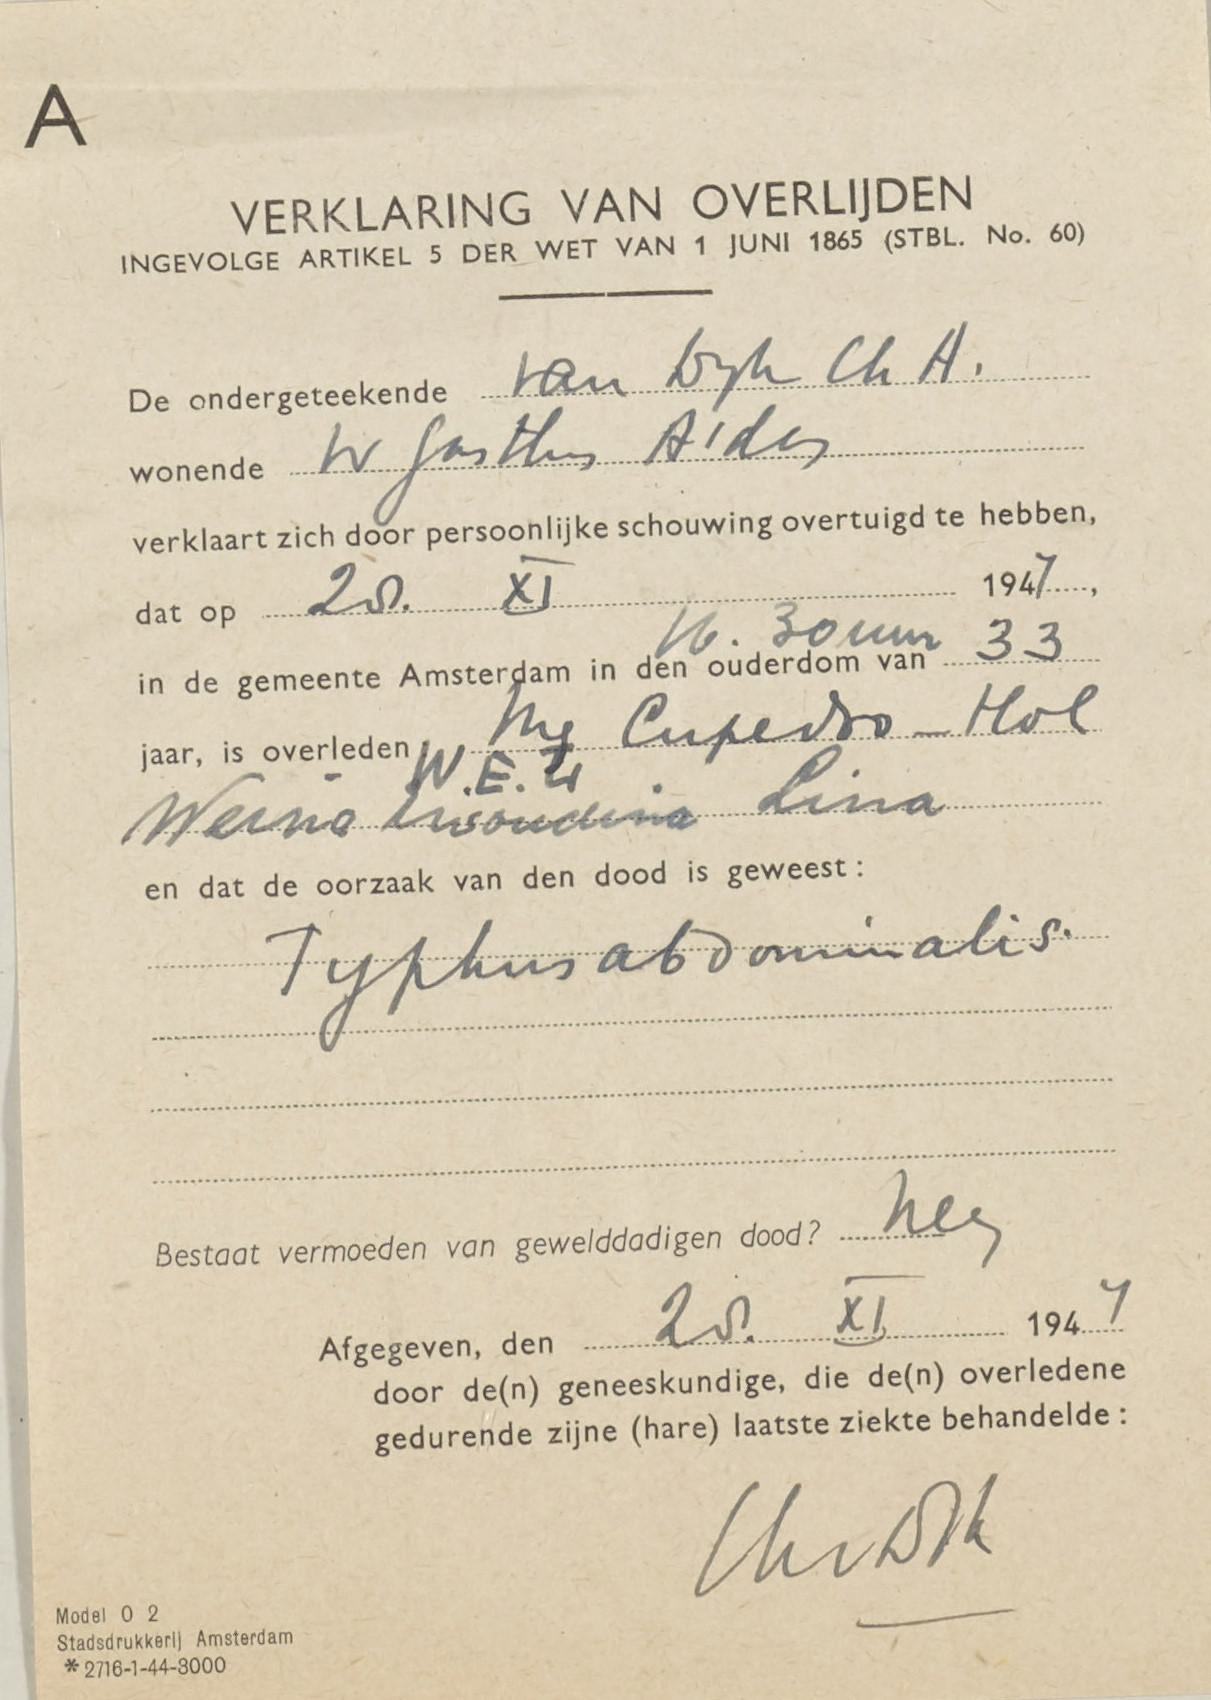 A
VERKLARING VAN OVERLIJDEN
INGEVOLGE ARTIKEL 5 DER WET VAN 1 JUNI 1865 (STBL. No. 60)
De ondergeteekende van Dyk Ch A.
wonende W Gasthuis A'dam
verklaart zich door persoonlijke schouwing overtuigd te hebben,
dat op 28. XI 1947,
16.30 uur
in de gemeente Amsterdam in den ouderdom van 33
jaar, is overleden Mej Cupedo-Hol
W.E.L.
Lina
en dat de oorzaak van den dood is geweest:
Typhus abdominalis.
Bestaat vermoeden van gewelddadigen dood? Neen
Afgegeven, den 28. XI 1947
door de(n) geneeskundige, die de(n) overledene
gedurende zijne (hare) laatste ziekte behandelde:
ChvDyk
Model O 2
Stadsdrukkerij Amsterdam
* 2716-1-44-3000